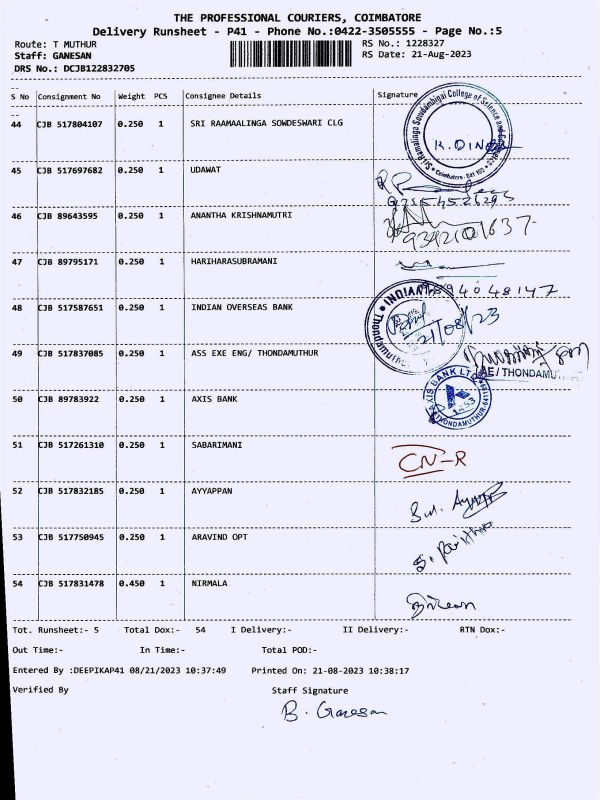 THE PROFESSIONAL COURIERS, COIMBATORE
Delivery Runsheet - P41 - Phone No.:0422-3505555 - Page No.:5
Route: T MUTHUR RS No.: 1228327
Staff: GANESAN RS Date: 21-Aug-2023
DRS No.: DCJB122832705
S No Consignment No Weight PCS Consignee Details Signature
44 CJB 517804107 0.250 1 SRI RAAMAALINGA SOWDESWARI CLG
K.DINE
45 CJB 517697682 0.250 1 UDAWAT
46 CJB 89643595 0.250 1 ANANTHA KRISHNAMUTRI
9342101637
47 CJB 89795171 0.250 1 HARIHARASUBRAMANI
94048147
48 CJB 517587651 0.250 1 INDIAN OVERSEAS BANK
INDIAN
21/08/23
49 CJB 517837085 0.250 1 ASS EXE ENG/ THONDAMUTHUR
AE / THONDAMU
50 CJB 89783922 0.250 1 AXIS BANK
AXIS BANK LTD
THONDAMUTHUR
51 CJB 517261310 0.250 1 SABARIMANI
CN-R
52 CJB 517832185 0.250 1 AYYAPPAN
53 CJB 517750945 0.250 1 ARAVIND OPT
54 CJB 517831478 0.450 1 NIRMALA
Tot. Runsheet:- 5 Total Dox:- 54 I Delivery:- II Delivery:- RTN Dox:-
Out Time:- In Time:- Total POD:-
Entered By :DEEPIKAP41 08/21/2023 10:37:49 Printed On: 21-08-2023 10:38:17
Verified By Staff Signature
B. Ganesan